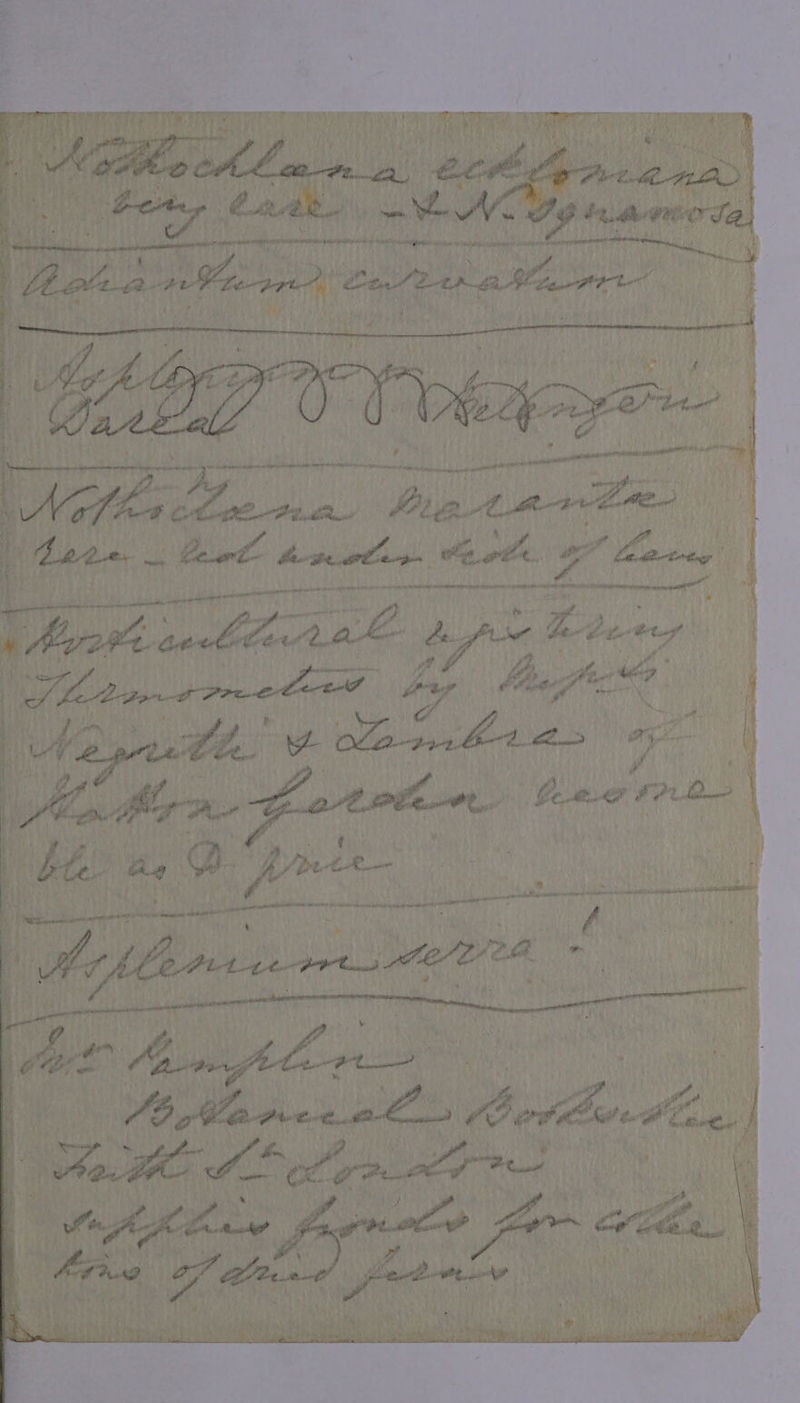 Nothochlæna eckloniana
very rare - & N. Squamosa
Adiantum curvatum
Asplenium Belangeri
Darea
Nothoclæna Marantæ
rare - red under side of leaves
Horticultural registering
Thermometers by Messrs
Negretti & Zambra of
Hatton Garden reasona
ble as to price
Asplenium serra !
Mr Pamplin
Botanical Bookseller
Frith St London
supplies fronds for collec
tions of dried ferns